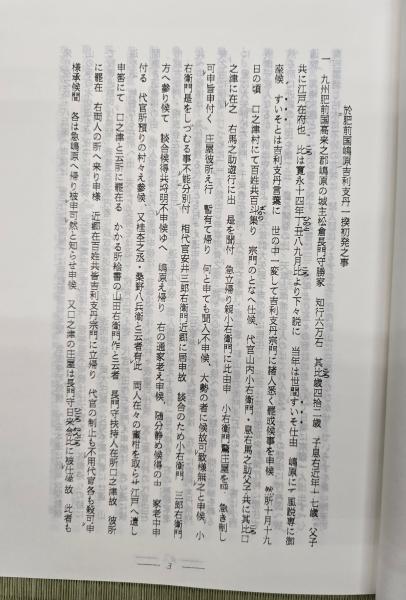 於肥前国嶋原吉利支丹一揆初発之事
一 九州肥前国高来之郡嶋原の城主松倉長門守勝家 知行六万石 其比歳四拾二歳 子息右近年十七歳 父子
共に江戸在府也 比は寛永十四年丁丑八九月比より下々説に 当年は世間すいそ仕由 嶋原にて風説専に御
座候 すいそとは吉利支丹言葉に 世の中一変して吉利支丹宗門に諸人悉く罷成候事を申候 然所十月十九
日の頃 口之津村にて百姓共百斗斗り 宗門のとなへ仕候、代官山内小右衛門・息右馬之助父子共に其比口
之津に在之 右馬之助遊行に出 是を聞付 急立帰り親小右衛門に此由申 小右衛門驚庄屋を 急き制し
可申旨申付く 庄屋彼所え行 暫有て帰り 何と申ても聞入不申候、大勢の者に候故可致様無之と申候、小
右衛門是をしつむる事不能分別付 相代官安井三郎右衛門近郷に居申故 談合のため小右衛門 三郎右衛門
方へ参り候て 談合候得共埒明不申候ゆへ 嶋原え帰り 右の通家老え申候、随分静め候得の由 家老中申
付る 代官所預りの村々え参候、又桂壱之丞・桑野八兵衛と云者有此 両人在々の蜜柑を取らせ江戸へ遣し
申筈にて 口之津と云所に罷在る かかる所絵書の山田右衛門作と云者 長門守扶持人在所口之津故 彼所
に罷在 右両人の所へ来り申様 近郷在百姓共皆吉利支丹宗門に立帰り 代官の制止も不用代官各も殺可申
様承候間 各は急嶋原へ帰り被申可然と知らせ申候、又口之津の庄屋は長門守日来念比に被仕候故 此者も
3